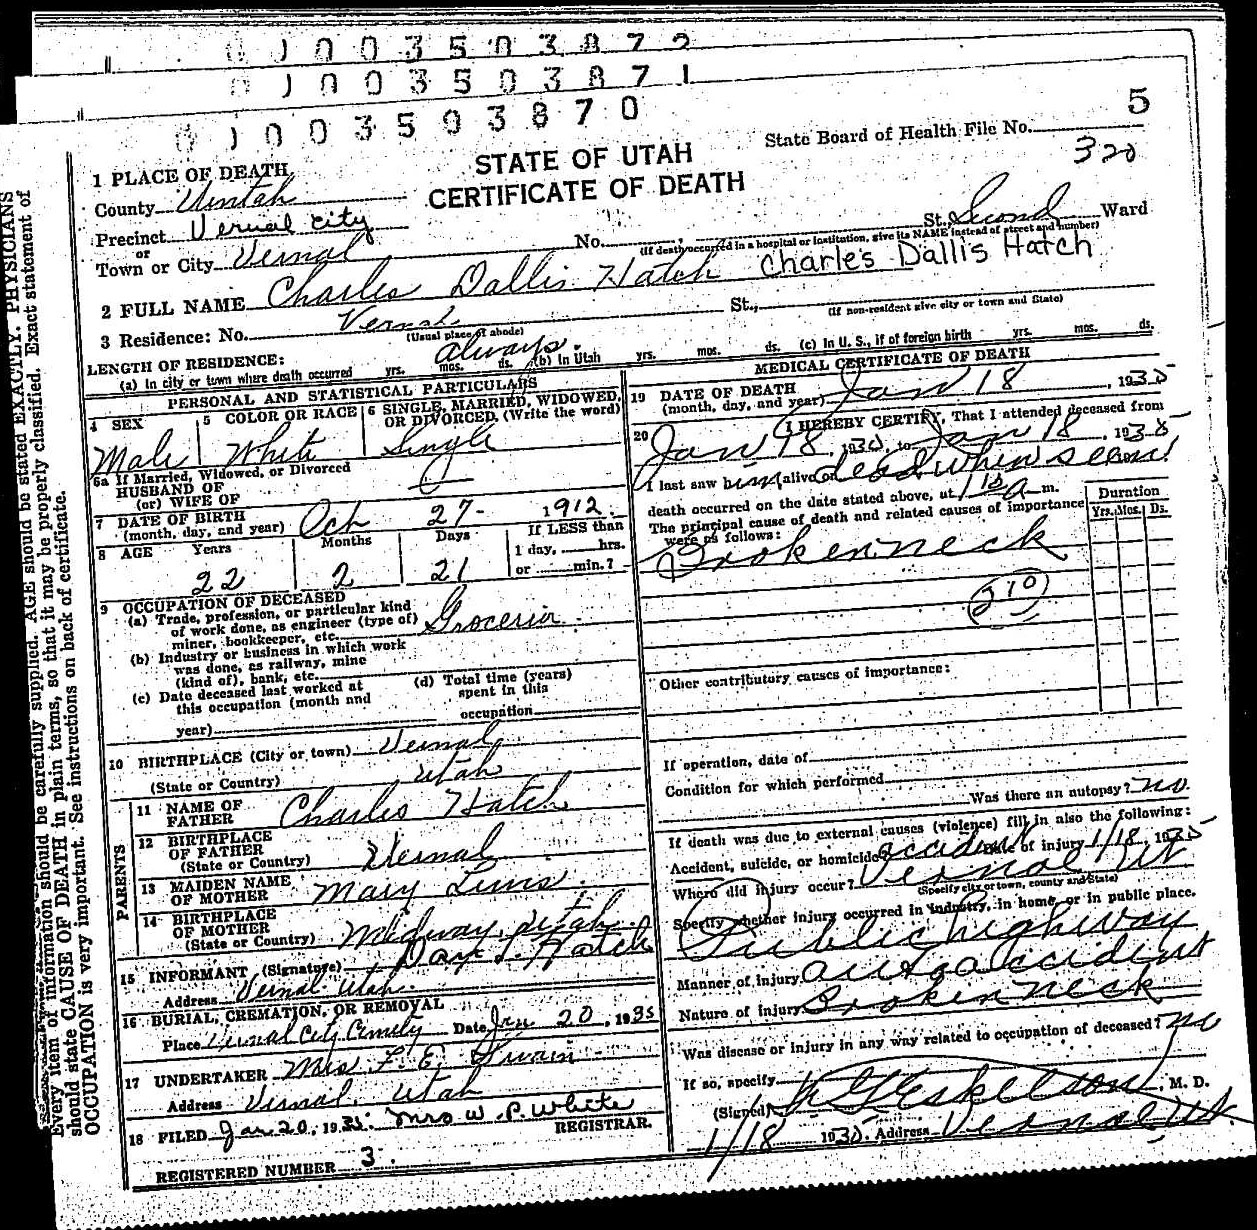 0 0 3 5 0 3 8 7 2
0 0 3 5 0 3 8 7 1
0 0 3 5 0 3 8 7 0
5
State Board of Health File No.
320
STATE OF UTAH
CERTIFICATE OF DEATH
1 PLACE OF DEATH
County Uintah
Precinct Vernal City
or
Town or City Vernal
No. St., Second Ward
(If death occurred in a hospital or institution, give its NAME instead of street and number)
2 FULL NAME Charles Dallis Hatch Charles Dallis Hatch
3 Residence: No. Vernal St.,
(Usual place of abode) (If non-resident give city or town and State)
LENGTH OF RESIDENCE: always
(a) In city or town where death occurred yrs. mos. ds. (b) In Utah yrs. mos. ds. (c) In U. S., if of foreign birth yrs. mos. ds.
PERSONAL AND STATISTICAL PARTICULARS
4 SEX Male
5 COLOR OR RACE White
6 SINGLE, MARRIED, WIDOWED, OR DIVORCED. (Write the word) Single
6a If Married, Widowed, or Divorced
HUSBAND OF
(or) WIFE OF
7 DATE OF BIRTH
(month, day, and year) Oct 27- 1912.
8 AGE Years Months Days If LESS than
1 day, hrs.
or min.?
22 2 21
9 OCCUPATION OF DECEASED
(a) Trade, profession, or particular kind
of work done, as engineer (type of)
miner, bookkeeper, etc.
(b) Industry or business in which work
was done, as railway, mine
(kind of), bank, etc.
(c) Date deceased last worked at
this occupation (month and
year)
(d) Total time (years)
spent in this
occupation
10 BIRTHPLACE (City or town) Vernal
(State or Country) Utah
PARENTS
11 NAME OF
FATHER Charles Hatch
12 BIRTHPLACE
OF FATHER
(State or Country) Vernal
13 MAIDEN NAME
OF MOTHER Mary Lewis
14 BIRTHPLACE
OF MOTHER
(State or Country) Midway Utah
15 INFORMANT (Signature) Hatch
Address Vernal Utah.
16 BURIAL, CREMATION, OR REMOVAL
Place Vernal City Date Jan 20, 1935
17 UNDERTAKER Mrs Swain
Address Vernal Utah
18 FILED Jan. 20, 1935. Mrs W. P. White
REGISTRAR.
REGISTERED NUMBER 3.
MEDICAL CERTIFICATE OF DEATH
19 DATE OF DEATH
(month, day, and year) Jan 18, 1935
20 I HEREBY CERTIFY, That I attended deceased from
Jan 18, 1935, to Jan 18, 1935
I last saw him alive on dead when seen!
death occurred on the date stated above, at m.
The principal cause of death and related causes of importance
were as follows:
Duration
Yrs. Mos. Ds.
Broken neck
210
Other contributory causes of importance:
If operation, date of
Condition for which performed
Was there an autopsy? no
If death was due to external causes (violence) fill in also the following:
Accident, suicide, or homicide? accident Date of injury 1/18, 1935
Where did injury occur? Vernal Ut
(Specify city or town, county and State)
Specify whether injury occurred in industry, in home, or in public place.
Public highway
Manner of injury auto accident
Nature of injury Broken neck
Was disease or injury in any way related to occupation of deceased? no
If so, specify
(Signed) Eskelson, M. D.
1/18 1935. Address Vernal, Ut.
Every item of information should be carefully supplied. AGE should be stated EXACTLY. PHYSICIANS
should state CAUSE OF DEATH in plain terms, so that it may be properly classified. Exact statement of
OCCUPATION is very important. See instructions on back of certificate.